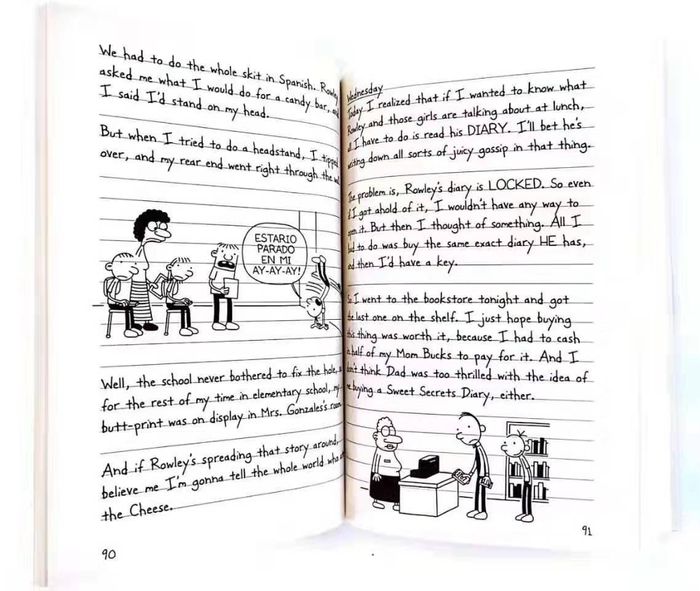 We had to do the whole skit in Spanish. Rowley
asked me what I would do for a candy bar, and
I said I'd stand on my head.
But when I tried to do a headstand, I tipped
over, and my rear end went right through the
ESTARIO
PARADO
EN MI
AY-AY-AY!
Well, the school never bothered to fix the hole,
for the rest of my time in elementary school, my
butt-print was on display in Mrs. Gonzales's room.
And if Rowley's spreading that story around,
believe me I'm gonna tell the whole world who
the Cheese.
90
Wednesday
Today I realized that if I wanted to know what
Rowley and those girls are talking about at lunch,
all I have to do is read his DIARY. I'll bet he's
writing down all sorts of juicy gossip in that thing.
The problem is, Rowley's diary is LOCKED. So even
if I got ahold of it, I wouldn't have any way to
open it. But then I thought of something. All I
had to do was buy the same exact diary HE has,
and then I'd have a key.
So I went to the bookstore tonight and got
the last one on the shelf. I just hope buying
this thing was worth it, because I had to cash
half of my Mom Bucks to pay for it. And I
don't think Dad was too thrilled with the idea of
me buying a Sweet Secrets Diary, either.
91